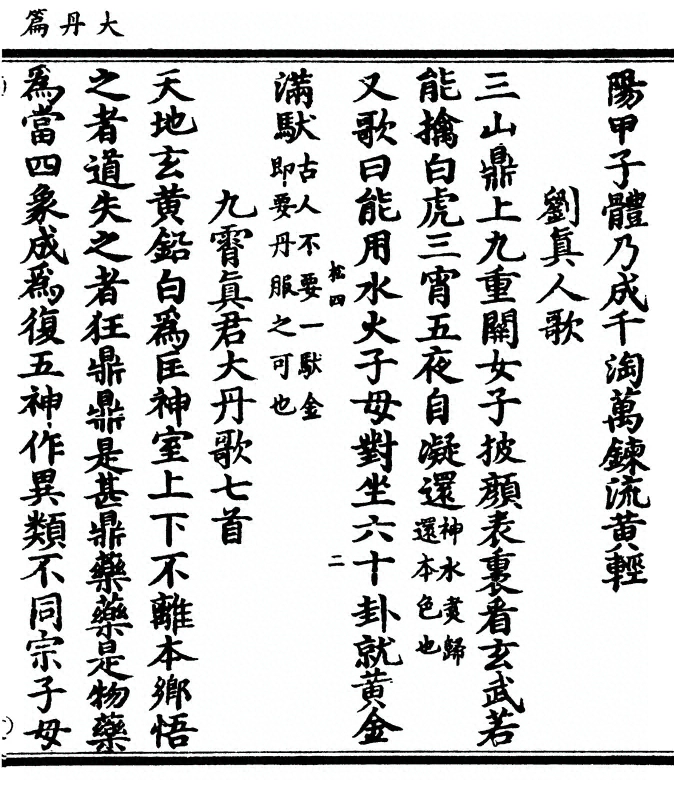 大丹篇
陽甲子體乃成千淘萬鍊流黃輕
劉眞人歌
三山鼎上九重關女子披顏表裏看玄武若
能擒白虎三宵五夜自凝還神水煑歸還本色也
又歌曰能用水火子母對坐六十卦就黃金
二
松四
滿馱古人不要一馱金即要丹服之可也
九霄眞君大丹歌七首
天地玄黃鉛白爲匡神室上下不離本鄉悟
之者道失之者狂鼎鼎是甚鼎藥藥是物藥
爲當四象成爲復五神作異類不同宗子母